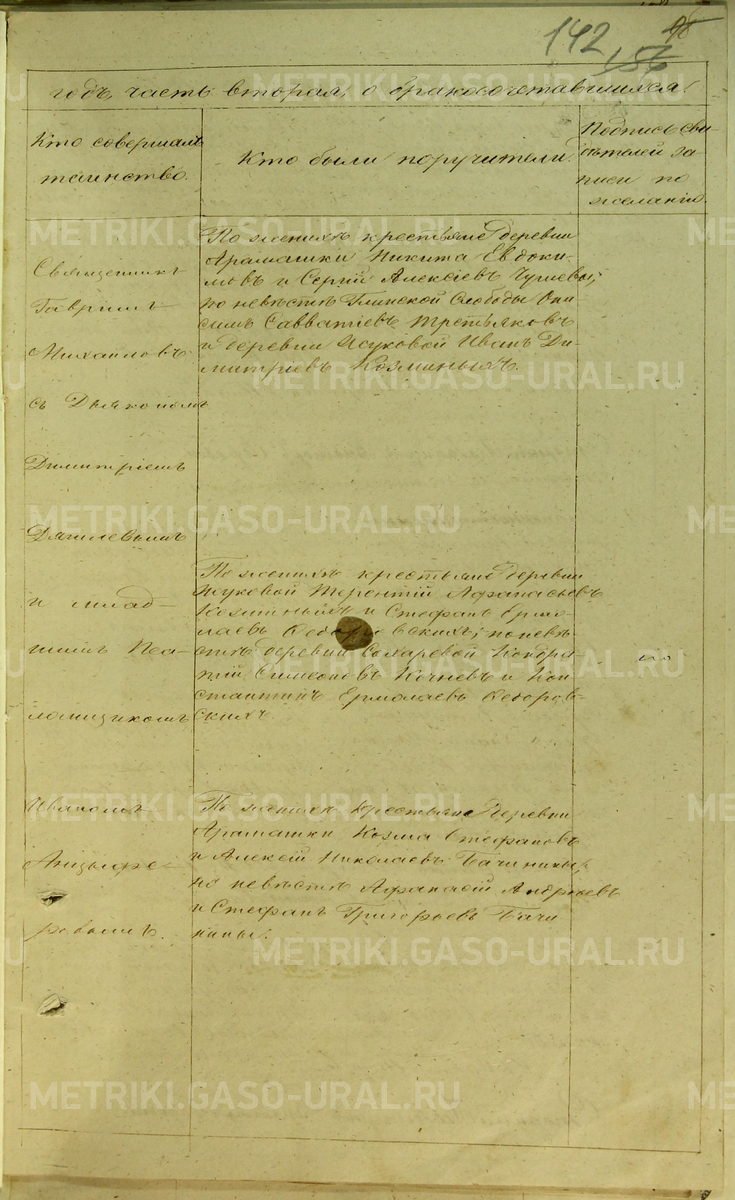 142
годъ, часть вторая, о бракосочетавшихся.
Кто совершалъ
таинство.
Кто были поручители.
Подпись сви-
дѣтелей за-
писи по
желанію.
Священникъ
Гавріилъ
Михайловъ
съ Діякономъ
Димитріемъ
и млад-
шимъ Пса-
ломщикомъ
Иваномъ
По женихѣ крестьяне деревни
Арамашки Никита Евдоки-
мовъ и Сергій Алексіевъ
по невѣстѣ Глинской Слободы Они-
симъ Савватіевъ Третьяковъ
и деревни Ясуковой Иванъ Ди-
митріевъ Козминыхъ.
По женихѣ крестьяне деревни
Терентій Афанасьевъ
и Стефанъ Ермо-
лаевъ по невѣ-
стѣ деревни Сохаревой Кондра-
тій Симеоновъ Кочневъ и Кон-
стантинъ Ермолаевъ Федоров-
скихъ.
По женихѣ крестьяне деревни
Арамашки Козма Стефановъ
и Алексѣй Николаевъ Бачинины,
по невѣстѣ Афанасій Андреевъ
и Стефанъ Григорьевъ Бачи-
нины.
METRIKI.GASO-URAL.RU